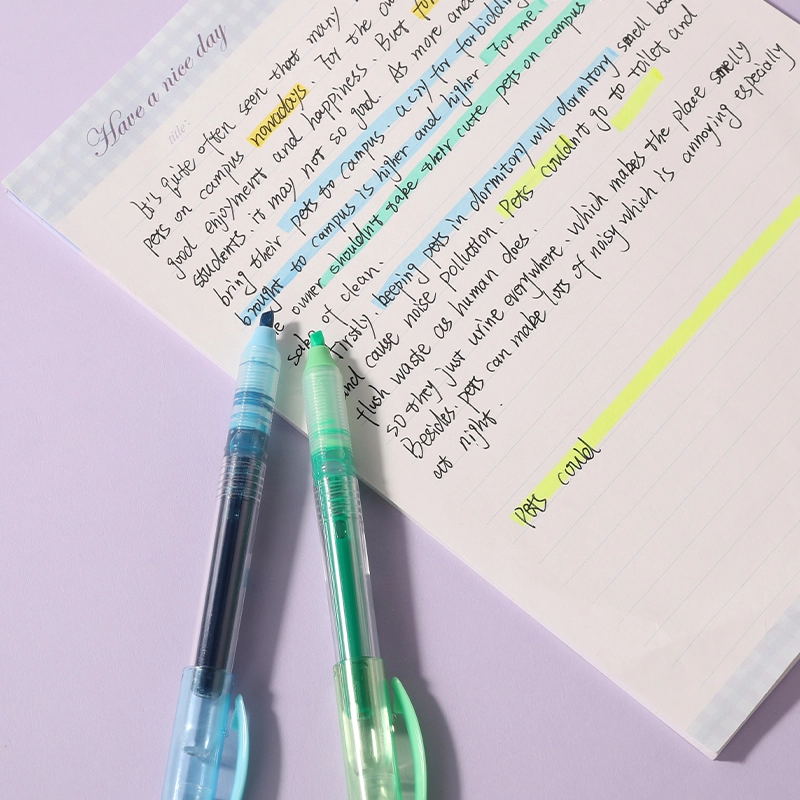 Have a nice day
title:
It's quite often seen that many
pets on campus nowadays. For the
good enjoyment and happiness. But for
students it may not so good. As more and
bring their pets to campus. a cry for forbidding
brought to campus is higher and higher. For me.
owner shouldn't take their cute pets on campus
sake of clean.
Firstly. keeping pets in dormitory will dormitory smell bad
and cause noise pollution. Pets couldn't go to toilet and
flush waste as human does.
so they just urine everywhere. Which makes the place smelly
Besides. pets can make lots of noisy which is annoying especially
at night.
Pets could